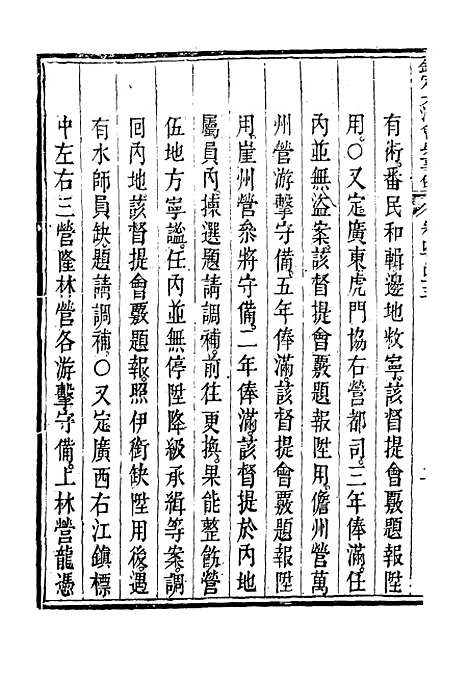 有術。番民和輯邊地敉寧。該督提會覈題報陞
用。○又定廣東虎門協右營都司。三年俸滿。任
內並無盜案。該督提會覈題報陞用。儋州營萬
州營游擊守備。五年俸滿。該督提會覈題報陞
用。崖州營叅將守備。二年俸滿。該督提於內地
屬員內。揀選題請調補。前往更換。果能整飭營
伍地方寧謐。任內並無停陞降級承緝等案。調
囘內地該督提會覈題報。照伊銜缺陞用後。遇
有水師員缺。題請調補。○又定廣西右江鎮標
中左右三營隆林營各游擊守備。上林營龍憑